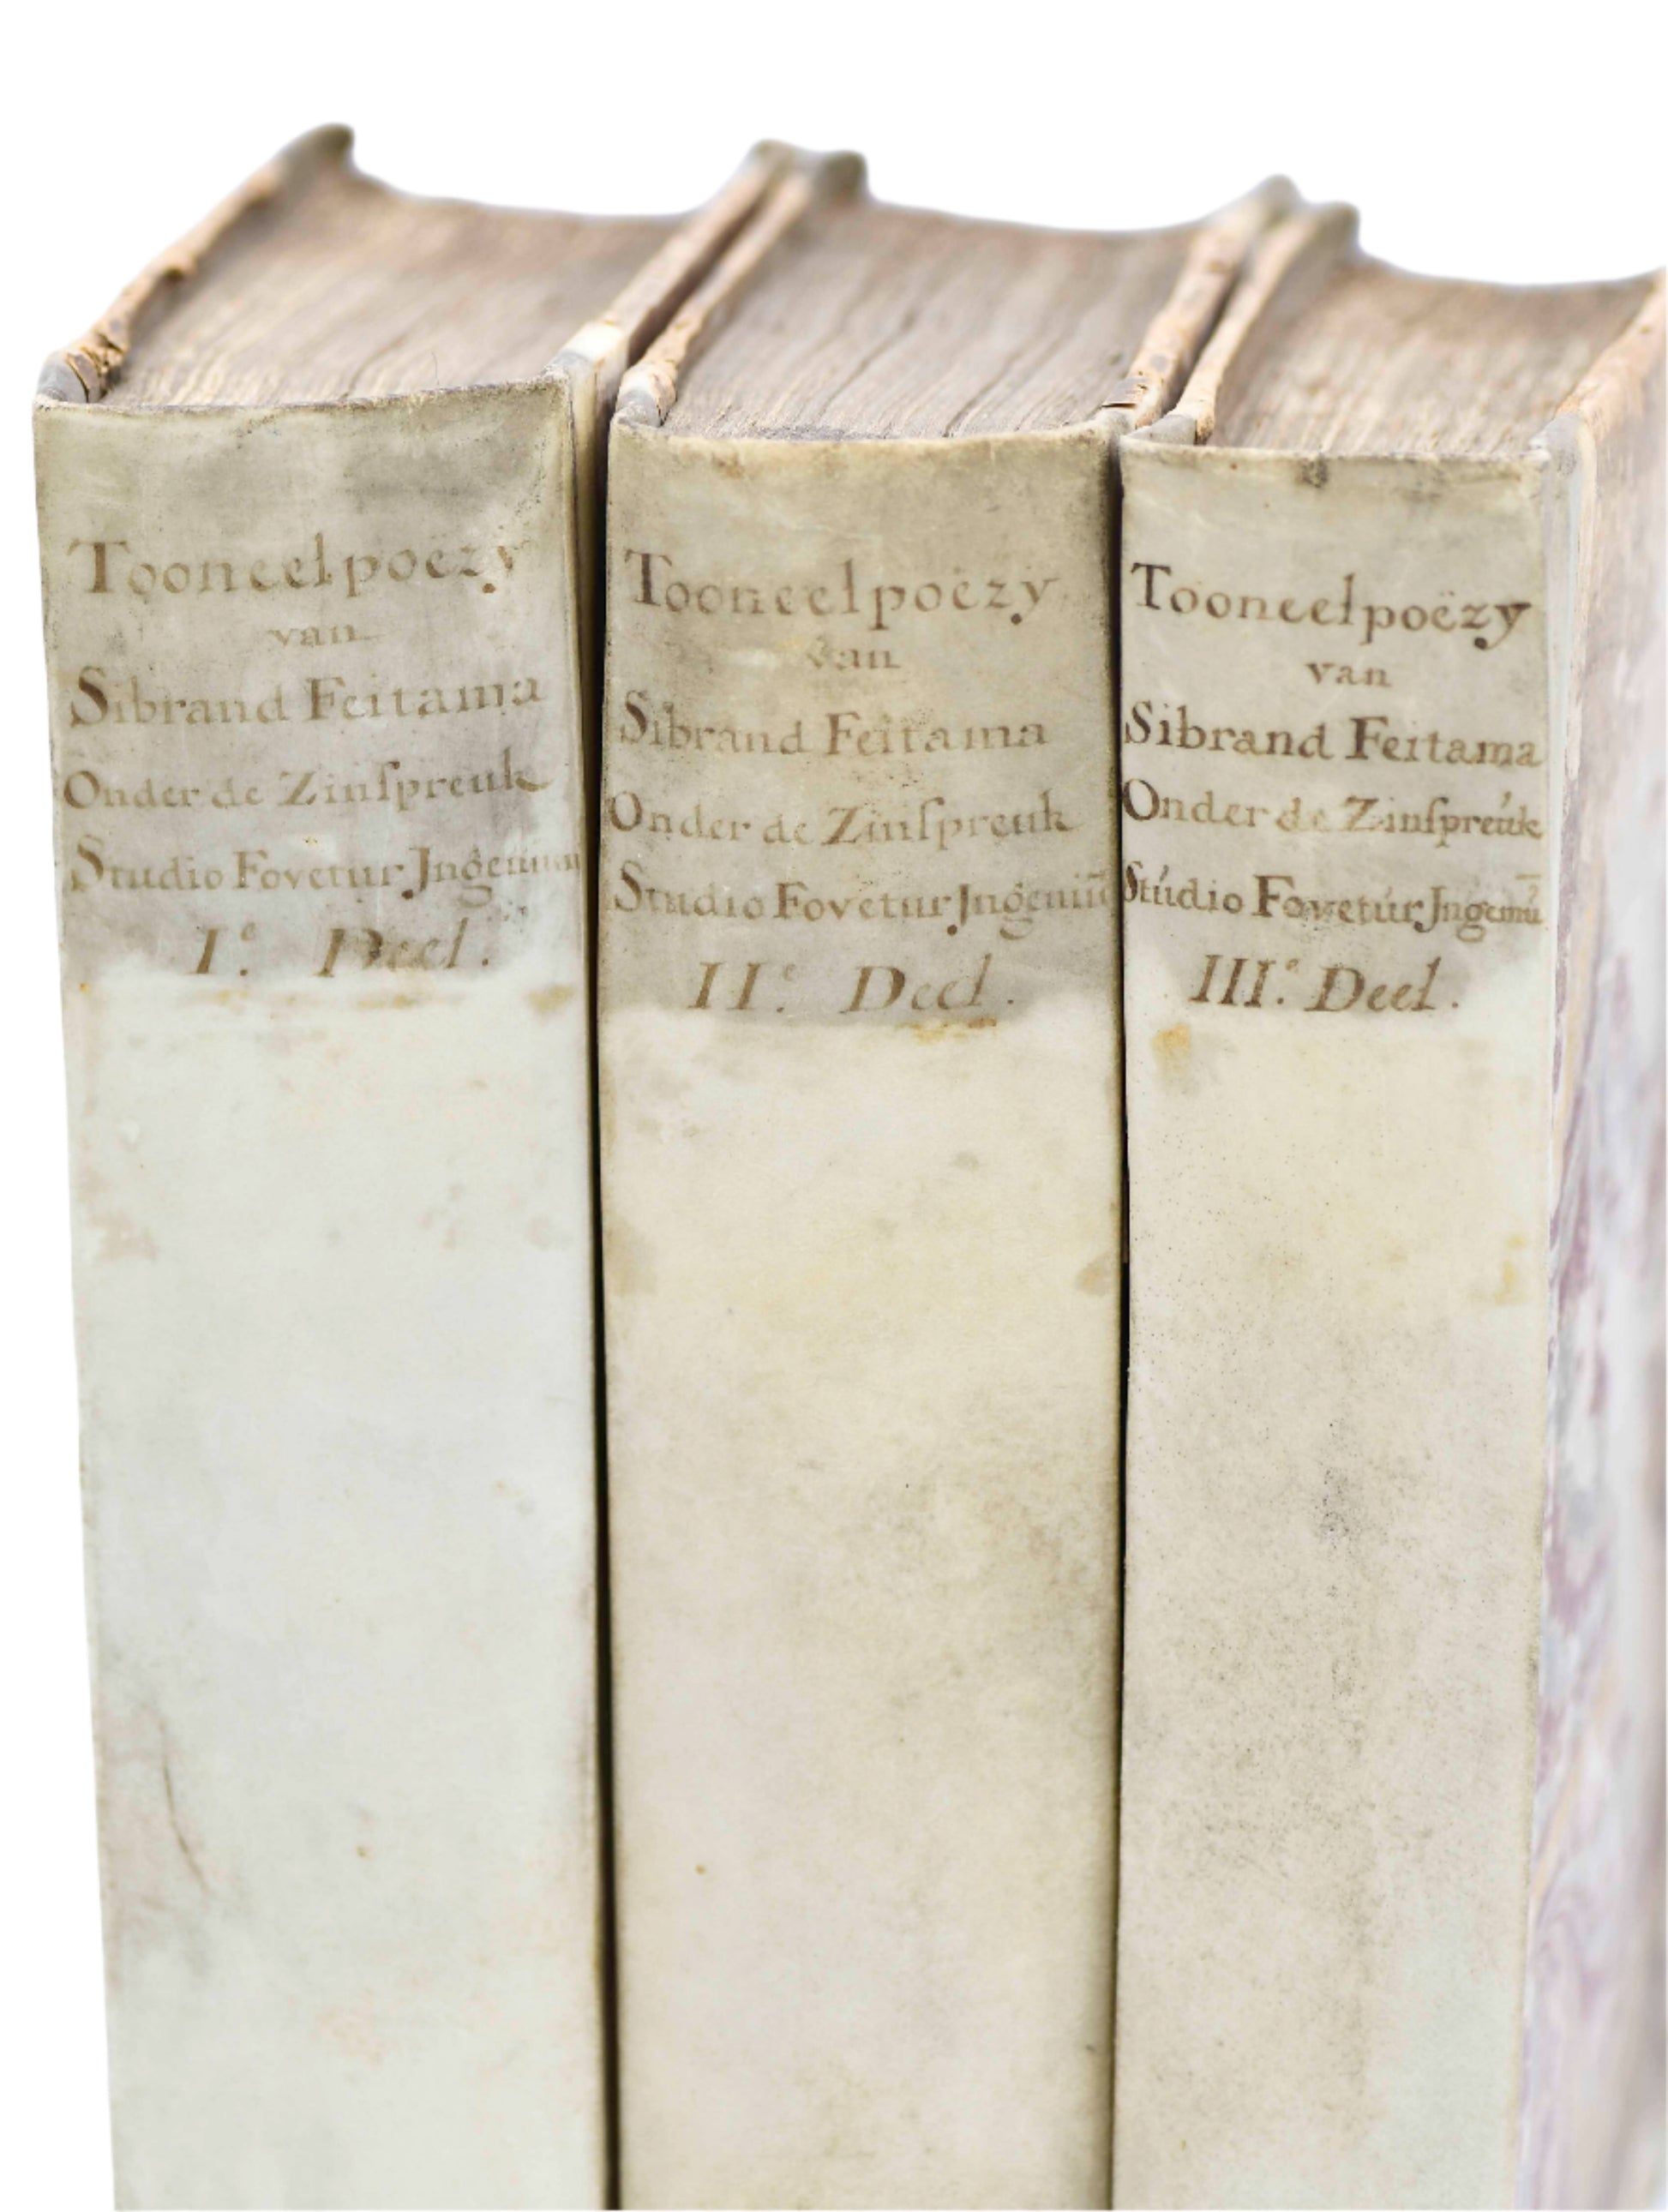 Tooneelpoëzy
van
Sibrand Feitama
Onder de Zinſpreuk
Studio Fovetur Jngenium
I.e Deel.
Tooneelpoëzy
van
Sibrand Feitama
Onder de Zinſpreuk
Studio Fovetur Jngeniū
II.e Deel.
Tooneelpoëzy
van
Sibrand Feitama
Onder de Zinſpreúk
Stúdio Fovetúr Jngeniū
III.e Deel.